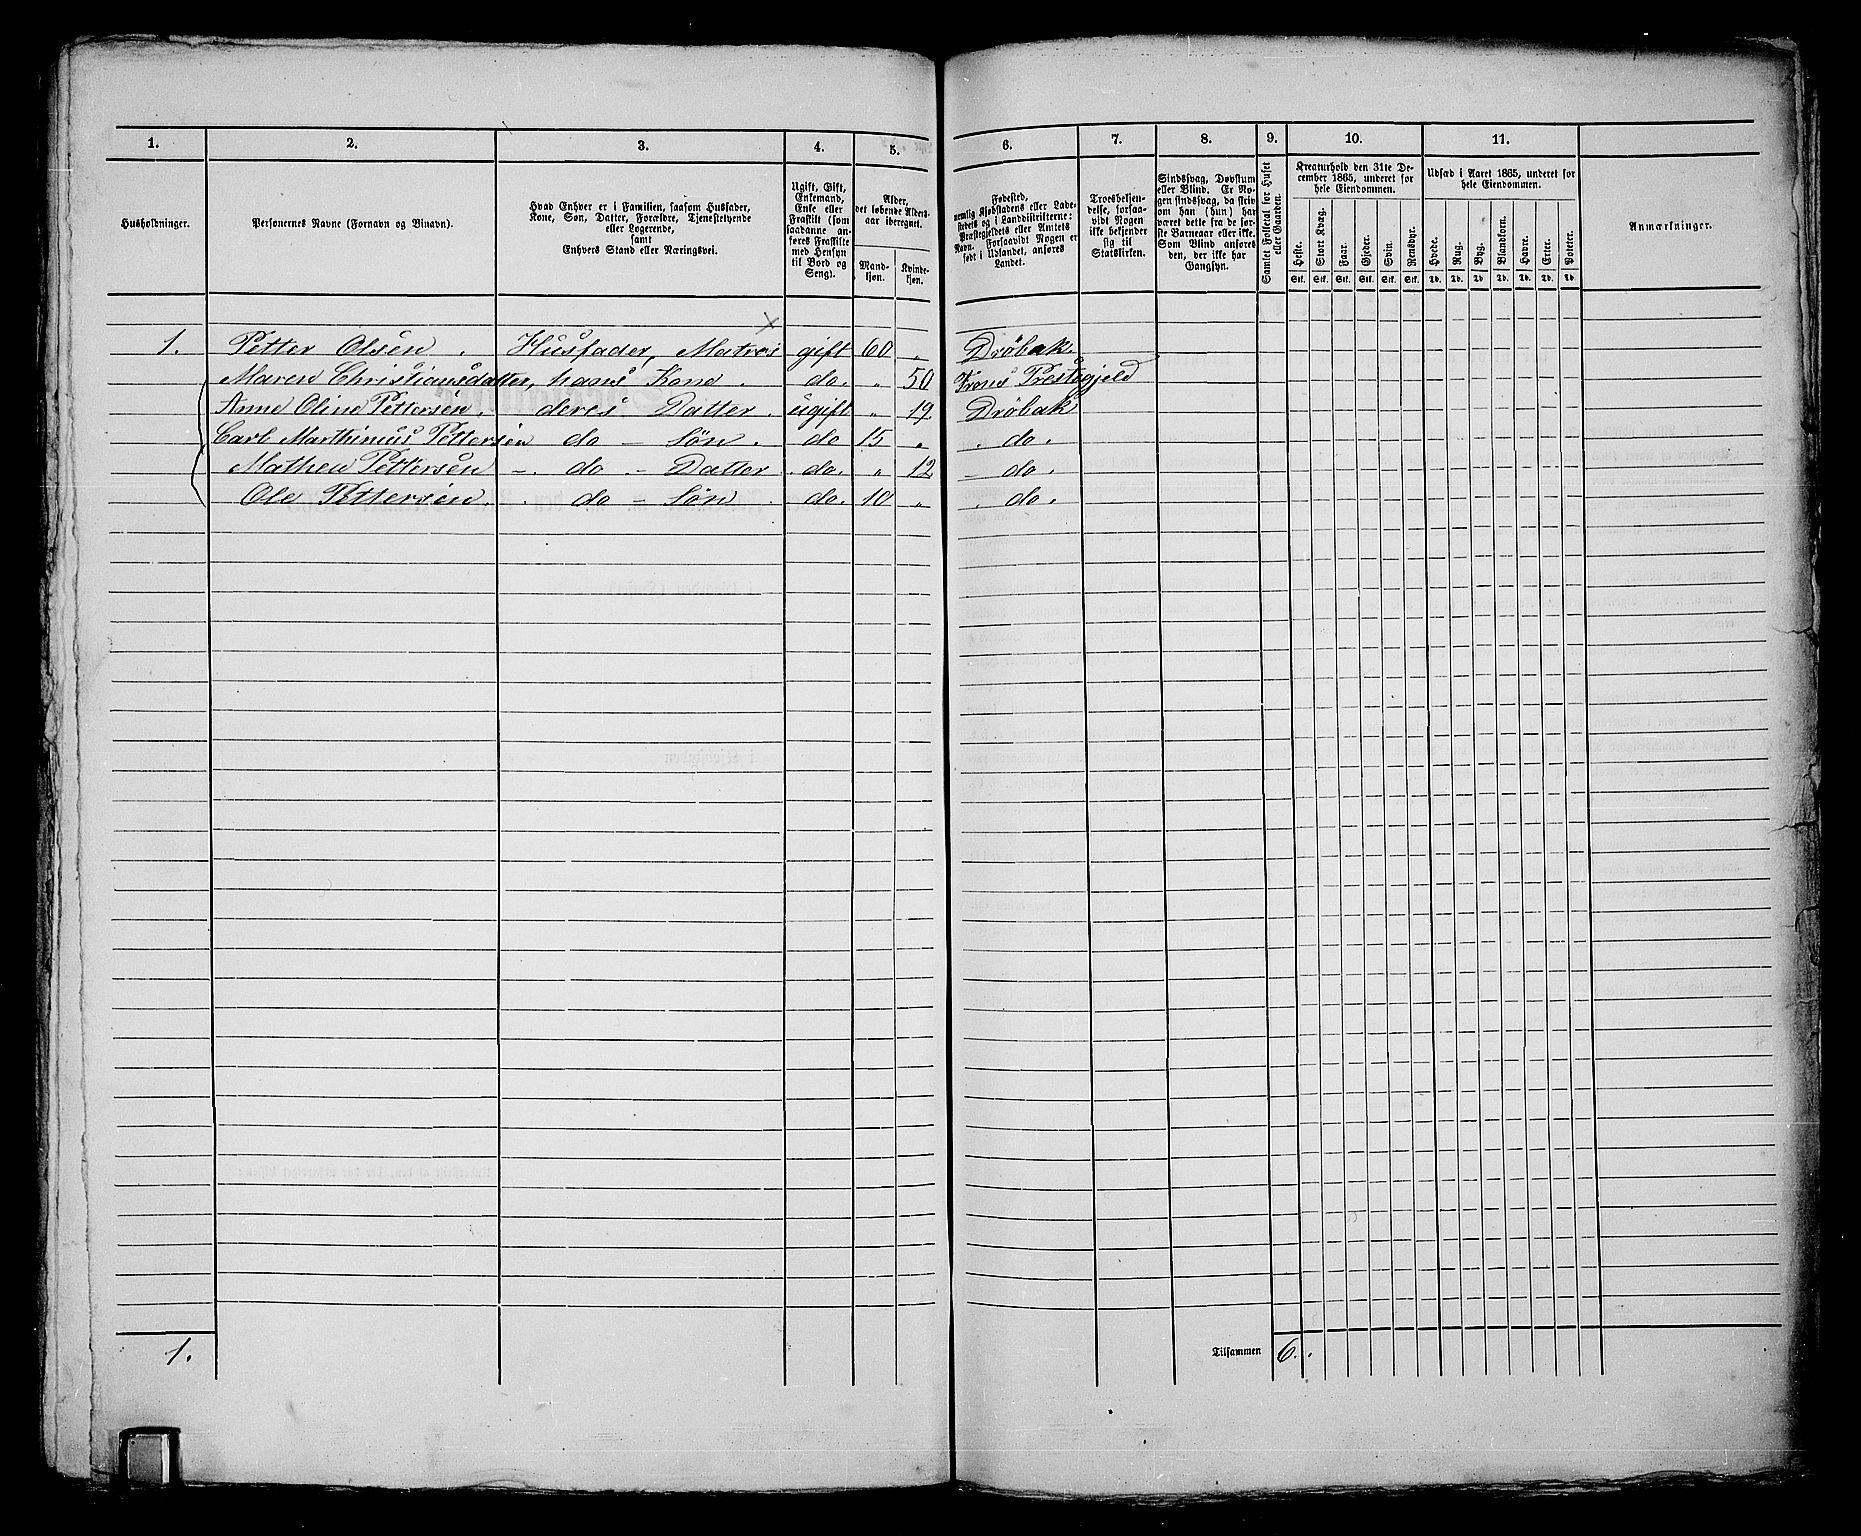 1. 2. 3. 4. 5. 6. 7. 8. 9. 10. 11.
Husholdninger.
Personernes Navne (Fornavn og Binavn).
Hvad Enhver er i Familien, saasom Husfader,
Kone, Søn, Datter, Forældre, Tjenestetyende
eller Logerende,
samt
Enhvers Stand eller Næringsvei.
Ugift, Gift,
Enkemand,
Enke eller
Fraskilt (som
saadanne an-
føres Fraskilte
med Hensyn
til Bord og
Seng).
Alder,
det løbende Alders-
aar iberegnet.
Mand-
kjøn.
Kvinde-
kjøn.
Fødested,
nemlig Kjøbstadens eller Lade-
stedets og i Landdistrikterne:
Præstegjeldets eller Amtets
Navn. Forsaavidt Nogen er
født i Udlandet, anføres
Landet.
Troesbekjen-
delse, forsaa-
vidt Nogen
ikke bekjender
sig til
Statskirken.
Sindssvag, Døvstum
eller Blind. Er No-
gen sindssvag, da skriv
om han (hun) har
været dette fra de før-
ste Barneaar eller ikke.
Som Blind anføres
den, der ikke har
Gangsyn.
Samlet Folketal for Huset
eller Gaarden.
Kreaturhold den 31te De-
cember 1865, underet for
hele Eiendommen.
Heste. Stort Kvæg. Faar. Gjeder. Svin. Rensdyr.
Stk. Stk. Stk. Stk. Stk. Stk.
Udsæd i Aaret 1865, underet for
hele Eiendommen.
Hvede. Rug. Byg. Blandkorn. Havre. Erter. Poteter.
Td. Td. Td. Td. Td. Td. Td.
Anmærkninger.
1. Petter Olsen . Husfader, Matros gift 60 „ Drøbak.
Maren Christiansdatter, hans Kone . do. „ 50 Krons Prestegjeld
Anne Oline Pettersen . deres Datter . ugift „ 19. Drøbak
Carl Marthinius Pettersen do - Søn . do 15 „ . do.
Mathea Pettersen - . do - Datter . do. „ 12 - do.
Ole Pettersen . . do - Søn . do. 10 „ . do.
1. Tilsammen 6.